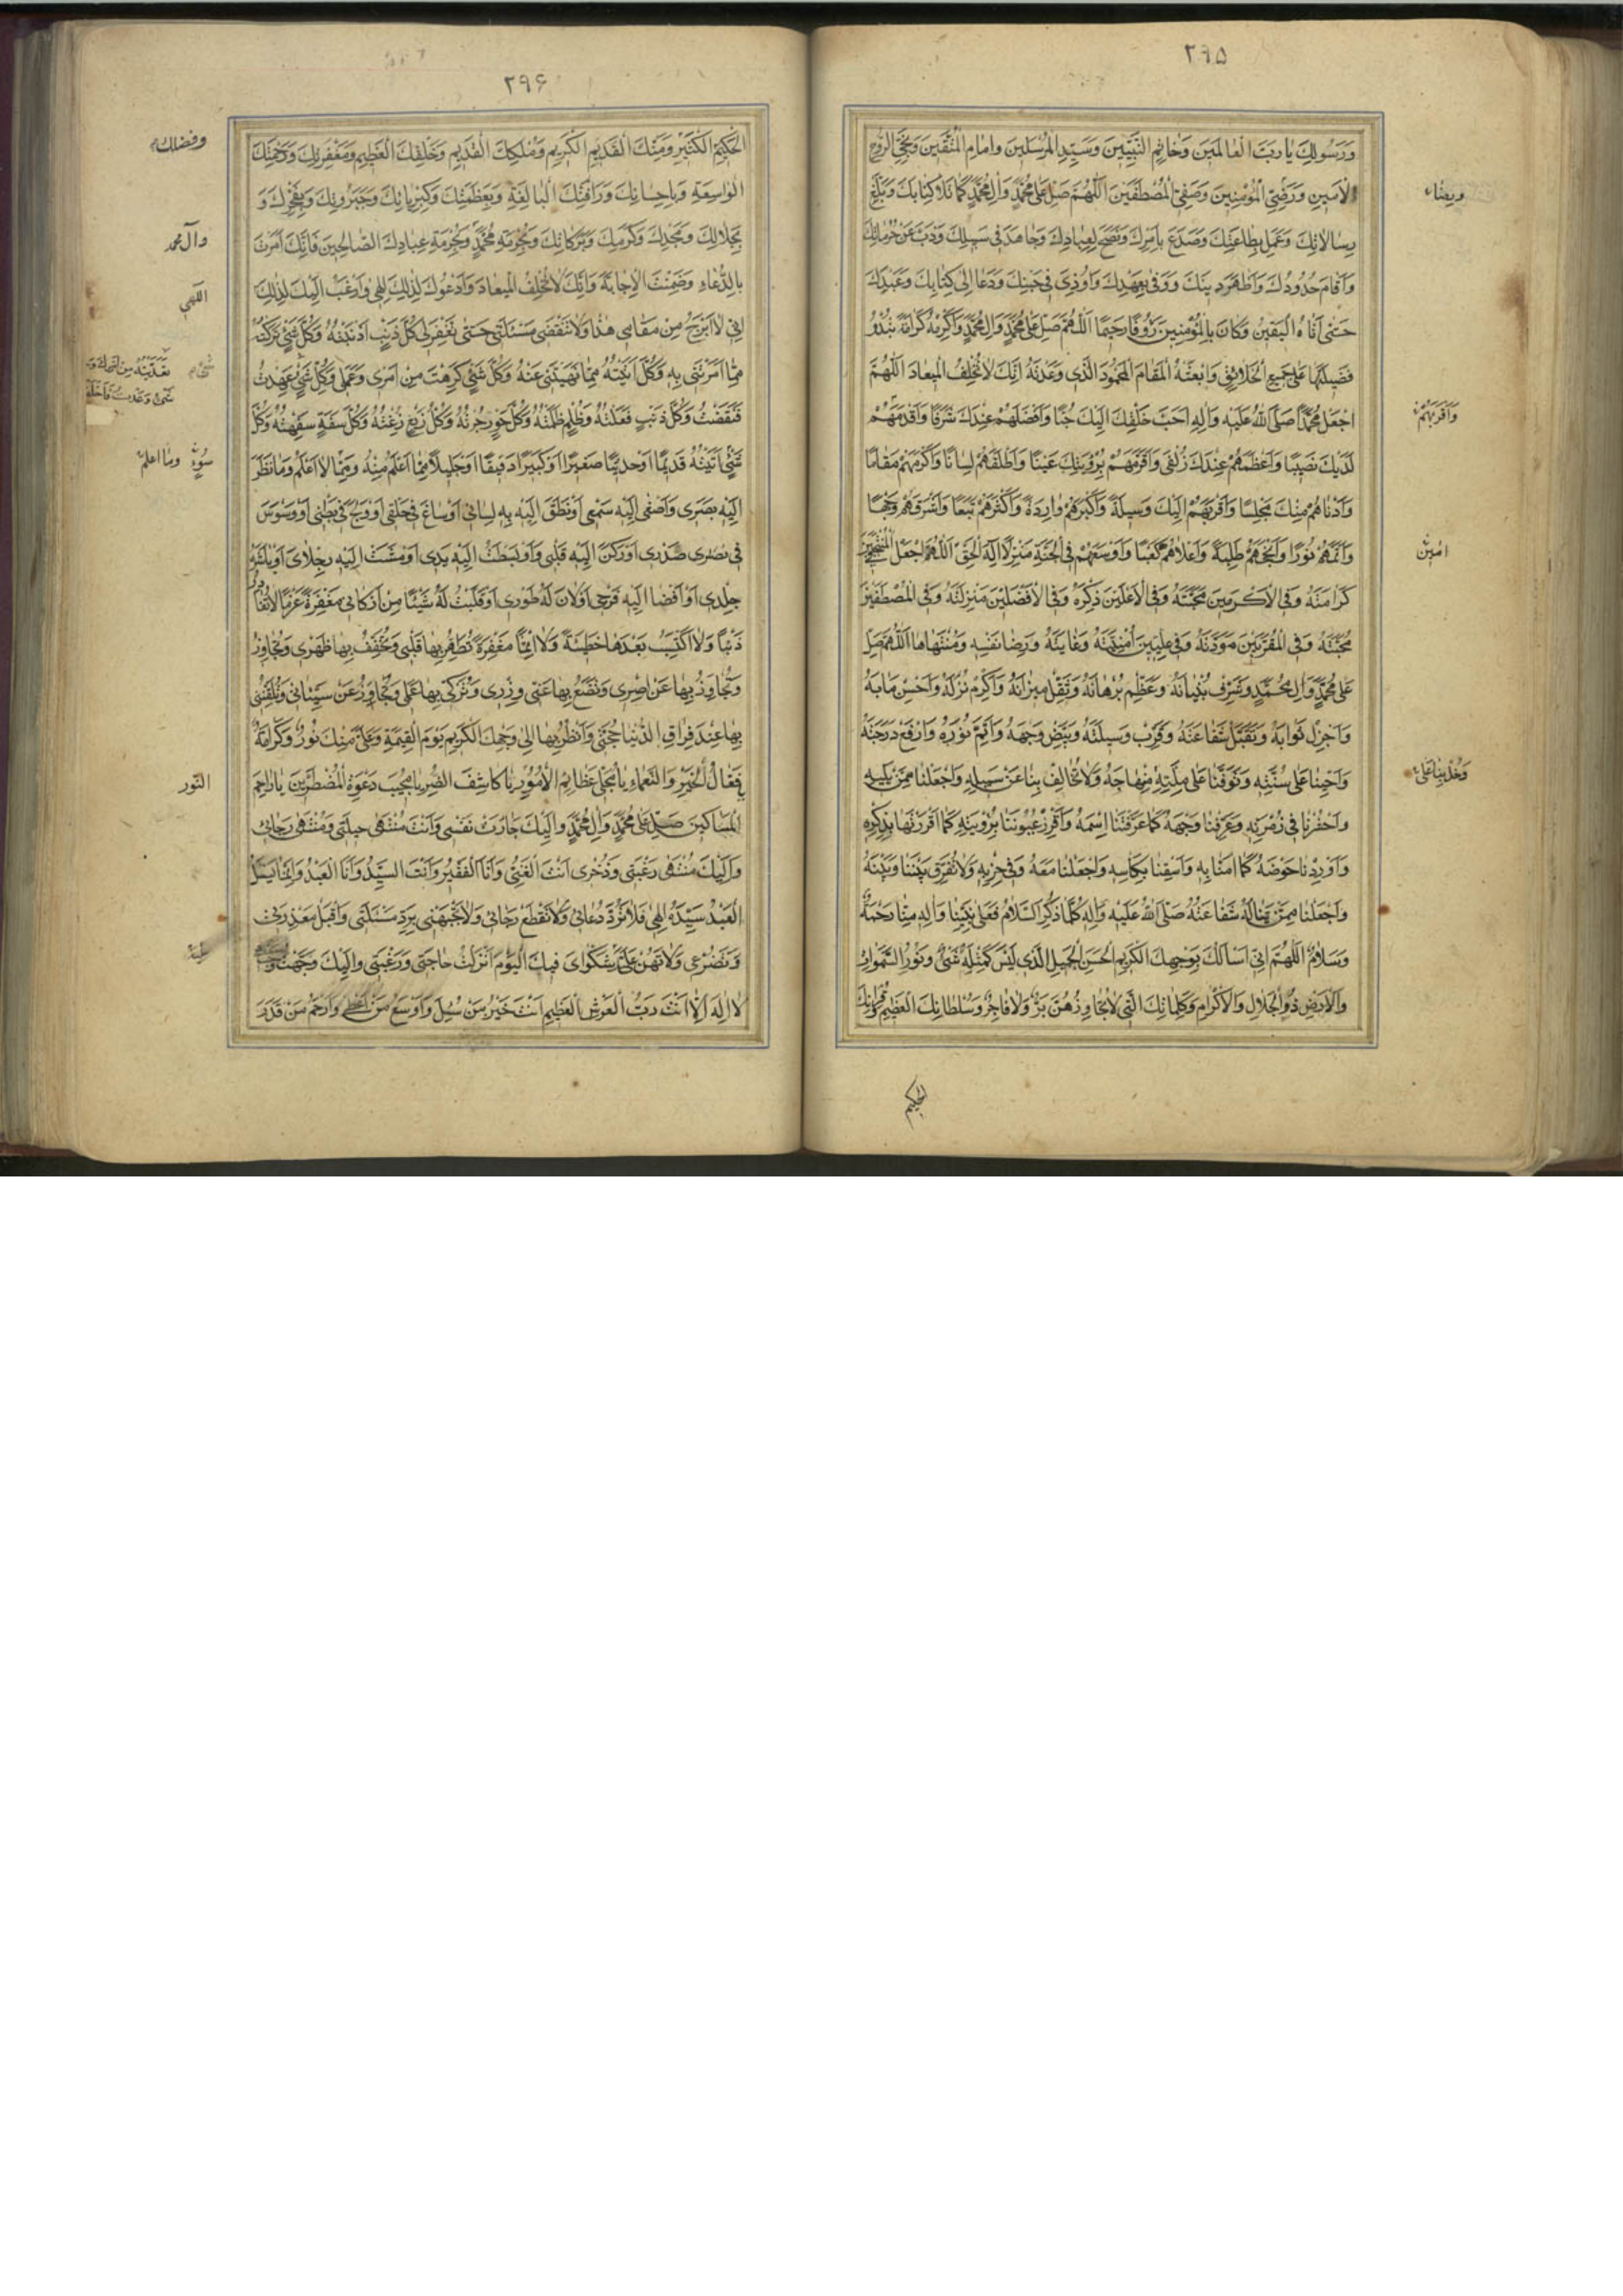 ۲۹۵
وَرَسُولِكَ يا رَبَّ الْعالَمينَ وَخاتِمِ النَّبِيّينَ وَسَيِّدِ الْمُرْسَلينَ وَاِمامِ الْمُتَّقينَ وَنَجِىِّ الرُّوحِ
الْاَمينِ وَرَضِىِّ الْمُؤْمِنينَ وَصَفِىِّ الْمُصْطَفَيْنَ اَللّهُمَّ صَلِّ عَلى مُحَمَّدٍ وَالِ مُحَمَّدٍ كَما تَلا كِتابَكَ وَبَلَّغَ
رِسالاتِكَ وَعَمِلَ بِطاعَتِكَ وَصَدَعَ بِاَمْرِكَ وَنَصَحَ لِعِبادِكَ وَجاهَدَ فى سَبيلِكَ وَذَبَّ عَنْ حُرُماتِكَ
وَاَقامَ حُدُودَكَ وَاَظْهَرَ دينَكَ وَوَفى بِعَهْدِكَ وَاُوذِىَ فى جَنْبِكَ وَدَعا اِلى كِتابِكَ وَعَبَدَكَ
حَتّى اَتاهُ الْيَقينُ وَكانَ بِالْمُؤْمِنينَ رَؤُفًا رَحيمًا اَللّهُمَّ صَلِّ عَلى مُحَمَّدٍ وَالِ مُحَمَّدٍ وَاَكْرِمْهُ كَرامَةً تَبْدُو
فَضيلَتُها عَلى جَميعِ الْخَلائِقِ وَابْعَثْهُ الْمَقامَ الْمَحْمُودَ الَّذى وَعَدْتَهُ اِنَّكَ لا تُخْلِفُ الْميعادَ اَللّهُمَّ
اجْعَلْ مُحَمَّدًا صَلَّى اللهُ عَلَيْهِ وَالِهِ اَحَبَّ خَلْقِكَ اِلَيْكَ حُبًّا وَاَفْضَلَهُمْ عِنْدَكَ شَرَفًا وَاَقْدَمَهُمْ
لَدَيْكَ نَصيبًا وَاَعْظَمَهُمْ عِنْدَكَ زُلْفى وَاَقَرَّهُمْ بِرُؤْيَتِكَ عَيْنًا وَاَطْلَقَهُمْ لِسانًا وَاَكْرَمَهُمْ مَقامًا
وَاَدْناهُمْ مِنْكَ مَجْلِسًا وَاَقْرَبَهُمْ اِلَيْكَ وَسيلَةً وَاَكْثَرَهُمْ تَبَعًا وَاَشْرَقَهُمْ وَجْهًا
وَاَتَمَّهُمْ نُورًا وَاَنْجَحَهُمْ طَلِبَةً وَاَعْلاهُمْ كَعْبًا وَاَوْسَعَهُمْ فِى الْجَنَّةِ مَنْزِلًا اِلهَ الْحَقِّ اَللّهُمَّ اجْعَلْ
كَرامَتَهُ وَفِى الْاَكْرَمينَ مَحَبَّتَهُ وَفِى الْاَعْلَيْنَ ذِكْرَهُ وَفِى الْاَفْضَلينَ مَنْزِلَتَهُ وَفِى الْمُصْطَفَيْنَ
مَحَبَّتَهُ وَفِى الْمُقَرَّبينَ مَوَدَّتَهُ وَفى عِلِّيّينَ وَغايَتَهُ وَرِضا نَفْسِهِ وَمُنْتَهاها اَللّهُمَّ صَلِّ
عَلى مُحَمَّدٍ وَالِ مُحَمَّدٍ وَشَرِّفْ بُنْيانَهُ وَعَظِّمْ بُرْهانَهُ وَثَقِّلْ ميزانَهُ وَاَكْرِمْ نُزُلَهُ وَاَحْسِنْ مَابَهُ
وَاَجْزِلْ ثَوابَهُ وَتَقَبَّلْ شَفاعَتَهُ وَقَرِّبْ وَسيلَتَهُ وَبَيِّضْ وَجْهَهُ وَاَتِمَّ نُورَهُ وَارْفَعْ دَرَجَتَهُ
وَاَحْيِنا عَلى سُنَّتِهِ وَتَوَفَّنا عَلى مِلَّتِهِ مِنْهاجَهُ وَلا تُخالِفْ بِنا عَنْ سَبيلِهِ وَاجْعَلْنا مِمَّنْ يَليهِ
وَاحْشُرْنا فى زُمْرَتِهِ وَعَرِّفْنا وَجْهَهُ كَما عَرَّفْتَنا اسْمَهُ وَاَقْرِرْ عُيُونَنا بِرُؤْيَتِهِ كَما اَقْرَرْتَها بِذِكْرِهِ
وَاَوْرِدْنا حَوْضَهُ كَما امَنّا بِهِ وَاسْقِنا بِكَاْسِهِ وَاجْعَلْنا مَعَهُ وَفى حِزْبِهِ وَلا تُفَرِّقْ بَيْنَنا وَبَيْنَهُ
وَاجْعَلْنا مِمَّنْ تَنالُهُ شَفاعَتُهُ صَلَّى اللهُ عَلَيْهِ وَالِهِ كُلَّما ذُكِرَ السَّلامُ فَعَلى نَبِيِّنا وَالِهِ مِنّا رَحْمَةٌ
وَسَلامٌ اَللّهُمَّ اِنّى اَسْاَلُكَ بِوَجْهِكَ الْكَريمِ الْحَسَنِ الْجَميلِ الَّذى لَيْسَ كَمِثْلِهِ شَىْءٌ وَنُورِ السَّمواتِ
وَالْاَرْضِ ذُو الْجَلالِ وَالْاِكْرامِ وَكَلِماتِكَ الَّتى لا يُجاوِزُهُنَّ بَرٌّ وَلا فاجِرٌ وَسُلْطانِكَ الْعَظيمِ وَقُرْانِكَ
الحكيم
وَاَقْرَبَهُمْ
امين
وَخُذْ بِنا عَلى
۲۹۶
الْحَكيمِ الْكَثيرِ وَمَنِّكَ الْقَديمِ الْكَريمِ وَمُلْكِكَ الْقَديمِ وَخَلْقِكَ الْعَظيمِ وَمَغْفِرَتِكَ وَرَحْمَتِكَ
الْواسِعَةِ وَبِاِحْسانِكَ وَرَاْفَتِكَ الْبالِغَةِ وَبِعَظَمَتِكَ وَكِبْرِيائِكَ وَجَبَرُوتِكَ وَبِفَخْرِكَ وَ
بِجَلالِكَ وَمَجْدِكَ وَكَرَمِكَ وَبَرَكاتِكَ وَبِحُرْمَةِ مُحَمَّدٍ وَبِحُرْمَةِ عِبادِكَ الصّالِحينَ فَاِنَّكَ اَمَرْتَ
بِالدُّعاءِ وَضَمِنْتَ الْاِجابَةَ وَاِنَّكَ لا تُخْلِفُ الْميعادَ وَاَدْعُوكَ لِذلِكَ اِلهى وَاَرْغَبُ اِلَيْكَ لِذلِكَ
اِنّى لا اَبْرَحُ مِنْ مَقامى هذا وَلا تَنْقَضى مَسْئَلَتى حَتّى تَغْفِرَ لى كُلَّ ذَنْبٍ اَذْنَبْتُهُ وَكُلَّ شَىْءٍ تَرَكْتُهُ
مِمّا اَمَرْتَنى بِهِ وَكُلَّ ما اَتَيْتُهُ مِمّا نَهَيْتَنى عَنْهُ وَكُلَّ شَىْءٍ كَرِهْتَ مِنْ اَمْرى وَعَمَلى وَكُلَّ شَىْءٍ عَهِدْتُ
فَنَقَضْتُ وَكُلَّ ذَنْبٍ فَعَلْتُهُ وَظُلْمٍ ظَلَمْتُهُ وَكُلَّ جَوْرٍ جُرْتُهُ وَكُلَّ زَيْغٍ زِغْتُهُ وَكُلَّ سَفَهٍ سَفِهْتُهُ وَكُلَّ
شَىْءٍ اَتَيْتُهُ قَديمًا اَوْ حَديثًا صَغيرًا اَوْ كَبيرًا دَقيقًا اَوْ جَليلًا مِمّا اَعْلَمُ مِنْهُ وَمِمّا لا اَعْلَمُ وَما نَظَرَ
اِلَيْهِ بَصَرى وَاَصْغى اِلَيْهِ سَمْعى اَوْ نَطَقَ اِلَيْهِ بِهِ لِسانى اَوْ ساغَ فى حَلْقى اَوْ وَلَجَ فى بَطْنى اَوْ وَسْوَسَ
فى صَدْرى اَوْ رَكَنَ اِلَيْهِ قَلْبى وَاَوْ بَسَطْتُ اِلَيْهِ يَدى اَوْ مَشَتْ اِلَيْهِ رِجْلاىَ اَوْ باشَرَهُ
جِلْدى اَوْ اَفْضا اِلَيْهِ فَرْجى اَوْ لانَ لَهُ طَوْرى اَوْ قَلَبْتُ لَهُ شَيْئًا مِنْ اَرْكانى مَغْفِرَةً عَزْمًا
ذَنْبًا وَلا اَكْتَسِبُ بَعْدَها خَطيئَةً وَلا اِثْمًا مَغْفِرَةً تُطَهِّرُ بِها قَلْبى وَتُخَفِّفُ بِها ظَهْرى وَتُجاوِزُ
وَتُجاوِزُ بِها عَنْ اِصْرى وَتَضَعُ بِها عَنّى وِزْرى وَتُزَكّى بِها عَمَلى وَتُجاوِزُ عَنْ سَيِّئاتى وَتُلَقِّنُنى
بِها عِنْدَ فِراقِ الدُّنْيا حُجَّتى وَاَنْظُرُ بِها اِلى وَجْهِكَ الْكَريمِ يَوْمَ الْقِيمَةِ وَعَلَىَّ مِنْكَ نُورٌ وَكَرامَةٌ
يا فَعّالَ الْخَيْرِ وَالنَّعْماءِ يا مُجَلِّىَ عَظائِمِ الْاُمُورِ يا كاشِفَ الضُّرِّ يا مُجيبَ دَعْوَةِ الْمُضْطَرّينَ يا راحِمَ
الْمَساكينَ صَلِّ عَلى مُحَمَّدٍ وَالِ مُحَمَّدٍ وَاِلَيْكَ جَاَرَتْ نَفْسى وَاَنْتَ مُنْتَهى حيلَتى وَمُنْتَهى رَجائى
وَاِلَيْكَ مُنْتَهى رَغْبَتى وَذُخْرى اَنْتَ الْغَنِىُّ وَاَنَا الْفَقيرُ وَاَنْتَ السَّيِّدُ وَاَنَا الْعَبْدُ وَاِنَّما يَسْئَلُ
الْعَبْدُ سَيِّدَهُ اِلهى فَلا تَرُدَّ دُعائى وَلا تَقْطَعْ رَجائى وَلا تَجْبَهْنى بِرَدِّ مَسْئَلَتى وَاقْبَلْ مَعْذِرَتى
وَتَضَرُّعى وَلا تَهُنْ عَلَيْكَ شَكْواىَ فَبِكَ الْيَوْمَ اَنْزَلْتُ حاجَتى وَرَغْبَتى وَاِلَيْكَ وَجَّهْتُ
لا اِلهَ اِلّا اَنْتَ رَبُّ الْعَرْشِ الْعَظيمِ اَنْتَ خَيْرُ مَنْ سُئِلَ وَاَوْسَعُ مَنْ اَعْطى وَاَرْحَمُ مَنْ قَدَرَ
وفضلك
وآل محمد
اللهى
سُوءٍ وما اعلم
النّور